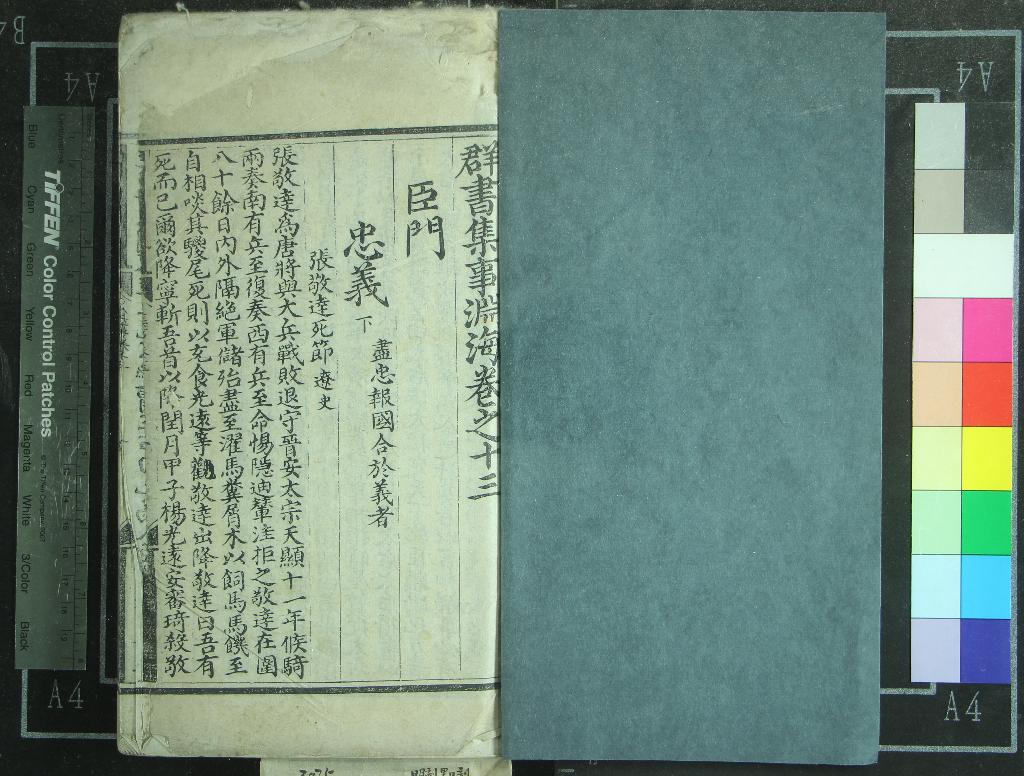 群書集事淵海卷之十三
臣門
盡忠報國合於義者
忠義下
張敬達死節 遼史
張敬達爲唐將與犬兵戰敗退守晉安太宗天顯十一年候騎
兩奏南有兵至復奏西有兵至命惕隱迪輦洼拒之敬達在圍
八十餘日內外隔絕軍儲殆盡至濯馬糞屑木以飼馬馬饑至
自相啖其騣尾死則以充食光遠等勸敬達出降敬達曰吾有
死而已爾欲降寧斬吾首以降閏月甲子楊光遠安審琦殺敬
TIFFEN Color Control Patches
Blue Cyan Green Yellow Red Magenta White 3/Color Black
A4
A4
A4
A4
B4